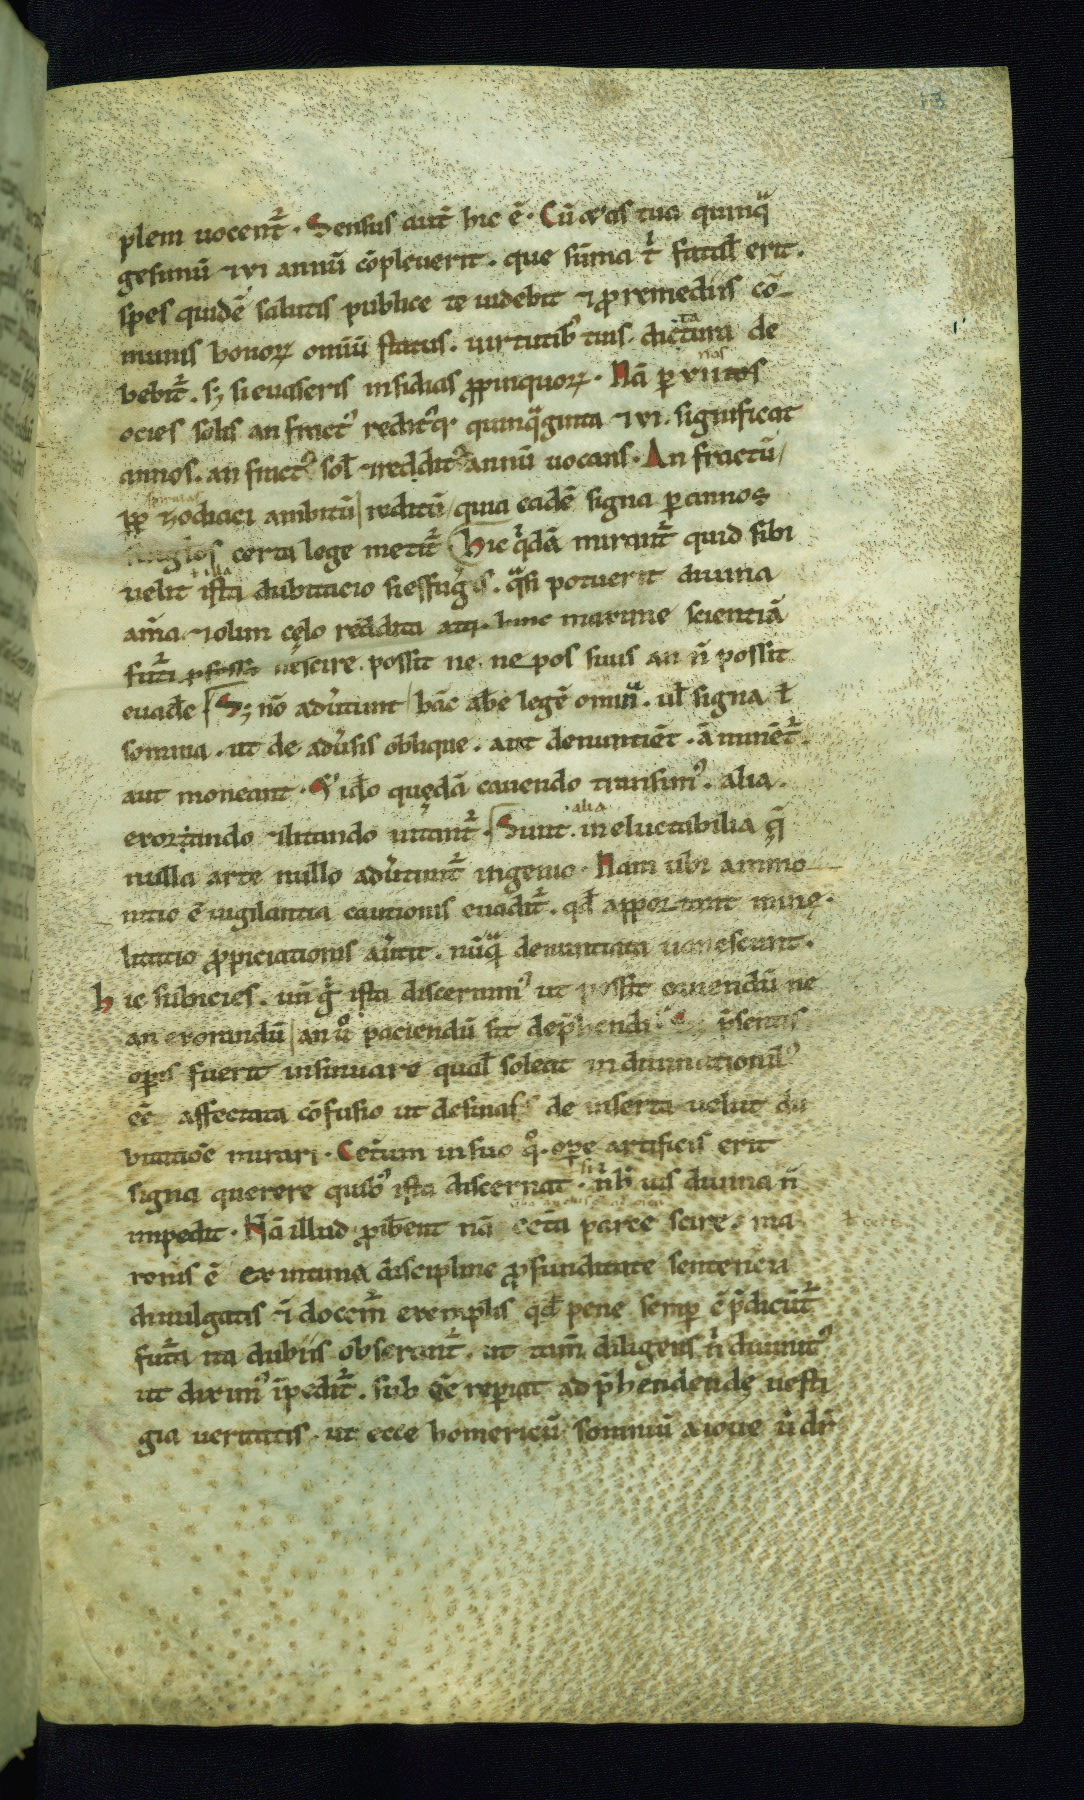 13
plem uocent᷑ . Sensus aut̄ hic ē . Cū ętas tua quinqͣ
gesimū ⁊ vi annū cōpleuerit . que sūma t̉ fatal̄ erit .
spes quidē salutis publice te uidebit ⁊ ꝓ remediis cō
munis bonoꝝ omiū status . uirtutibꝰ tuis . dictura de
bebit᷑ . sꝫ si euaseris insidias ꝓpinquoꝝ . Nā ꝑ viii tos
nos
ocies solis anfractꝰ reditꝰqꝫ quinqͣginta ⁊ vi . significat
annos . anfractꝰ sol̄ ⁊ redditꝰ annū uocans . Anfractū
ꝓꝑ zodiaci ambitū reditū quia eadē signa ꝑ annos
certa lege metit᷑ Hic qͥdā mirant᷑ quid sibi
uelit ista dubitacio si effugͥs . qͣsi potuerit diuina
aīa ⁊ olim cęlo reddita atqꝫ hinc maxime scientiā
futͥ nescire . possit ne . ne pos suus an n̄ possit
euade Sꝫ nō adūtunt hāc abe legē omina . ul̄ signa ł
somnia . ut de adūsis oblique . aut denuntiēt . aut minēt᷑ .
aut moneant . ⁊ ido quędā cauendo transimꝰ . alia .
exorando ⁊ litando uitant᷑ . Sunt alia ineluctabilia q̄
nulla arte nullo adūtunt᷑ ingenio . Nam ubi ammo
nitio ē uigilantia cautionis euadit᷑ . qd̄ apportant minę .
litatio ꝓpiciationis auertit . nūqͣ denuntiata uanescunt .
hic subicies . un̄ gͥ ista discernimꝰ ut possit cauendū ne
an exorandū an uͦ paciendū sit dep̄hendi . Sꝫ p̄sentis
oꝑis fuerit insinuare qual̄ soleat in diuinationibꝰ
eē affectata cōfusio ut desinas de inserta uelut du
bitatiōe mirari . Cet̄um in suo qͦqꝫ oꝑe artificis erit
signa querere quibꝰ ista discernat . si n̄ h̄ uis diuina n̄
impedit . Nā illud ꝓhibent nā cet̄a parce scire . ma
ronis ē ex intima discipline ꝓfunditate sentencia
diuulgatis ⁊ docem̄ exemplis qd̄ pene semꝑ ē p̄dicūt᷑
fut᷑a ita dubiis obserant᷑ . ut tam̄ diligens n̉ diuinitꝰ
ut diximꝰ īpedit᷑ . sub eē reꝑiat ad p̄hendende uesti
gia ueritatis . ut ecce homericū somniū a ioue ū dr̄